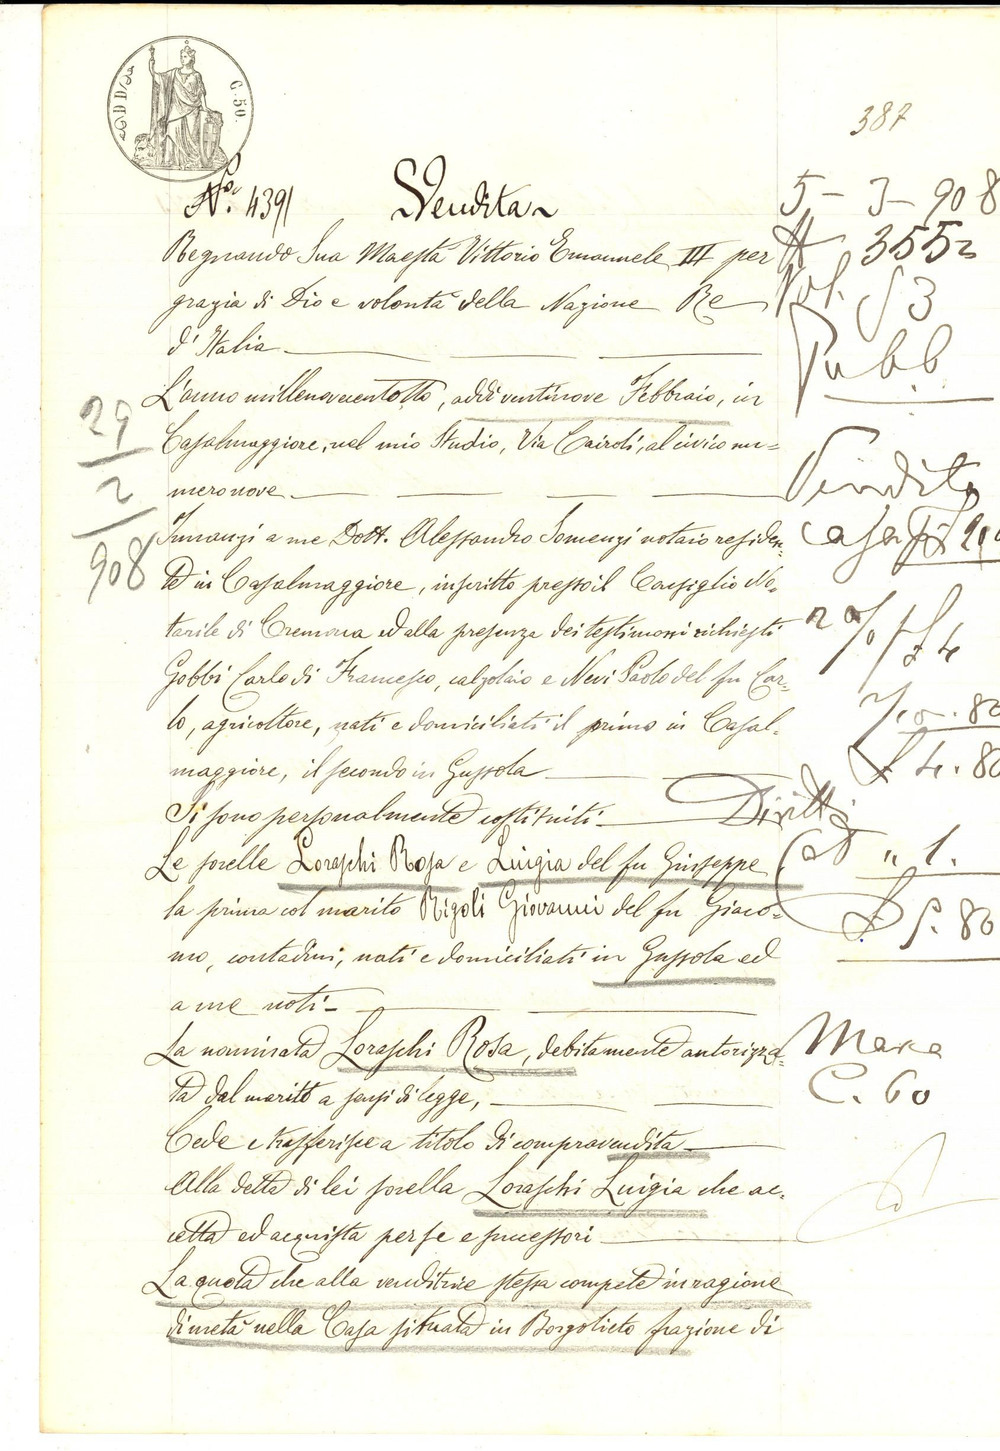 387
C. 50.
No. 4391 Vendita
Regnando Sua Maestà Vittorio Emanuele III per
grazia di Dio e volontà della Nazione Re
d'Italia
L'anno millenovecentotto, addì ventinove Febbraio, in
Casalmaggiore, nel mio Studio, Via Cairoli, al civico nu=
mero nove
Innanzi a me Dott. Alessandro Somenzi notaio residen=
te in Casalmaggiore, inscritto presso il Consiglio No=
tarile di Cremona ed alla presenza dei testimoni richiesti
Gobbi Carlo di Francesco, calzolaio e Nevi Paolo del fu Car=
lo, agricoltore, nati e domiciliati il primo in Casal=
maggiore, il secondo in Gussola
Si sono personalmente costituiti
Le sorelle Loraschi Rosa e Luigia del fu Giuseppe
la prima col marito Rigoli Giovanni del fu Giaco=
mo, contadini, nati e domiciliati in Gussola ed
a me noti
La nominata Loraschi Rosa, debitamente autorizza=
ta dal marito a sensi di legge,
Cede e trasferisce a titolo di compravendita
Alla detta di lei sorella Loraschi Luigia che ac=
cetta ed acquista per se e successori
La quota che alla venditrice stessa compete in ragione
di metà nella Casa situata in Borgolieto frazione di
29
2
908
5-3-908
3552
Vol. 53
Pubb
Vendita
casa
2% £ 4
80
£ 4.80
Diritti
Cat " 1.
£ 5.80
Marca
C. 60